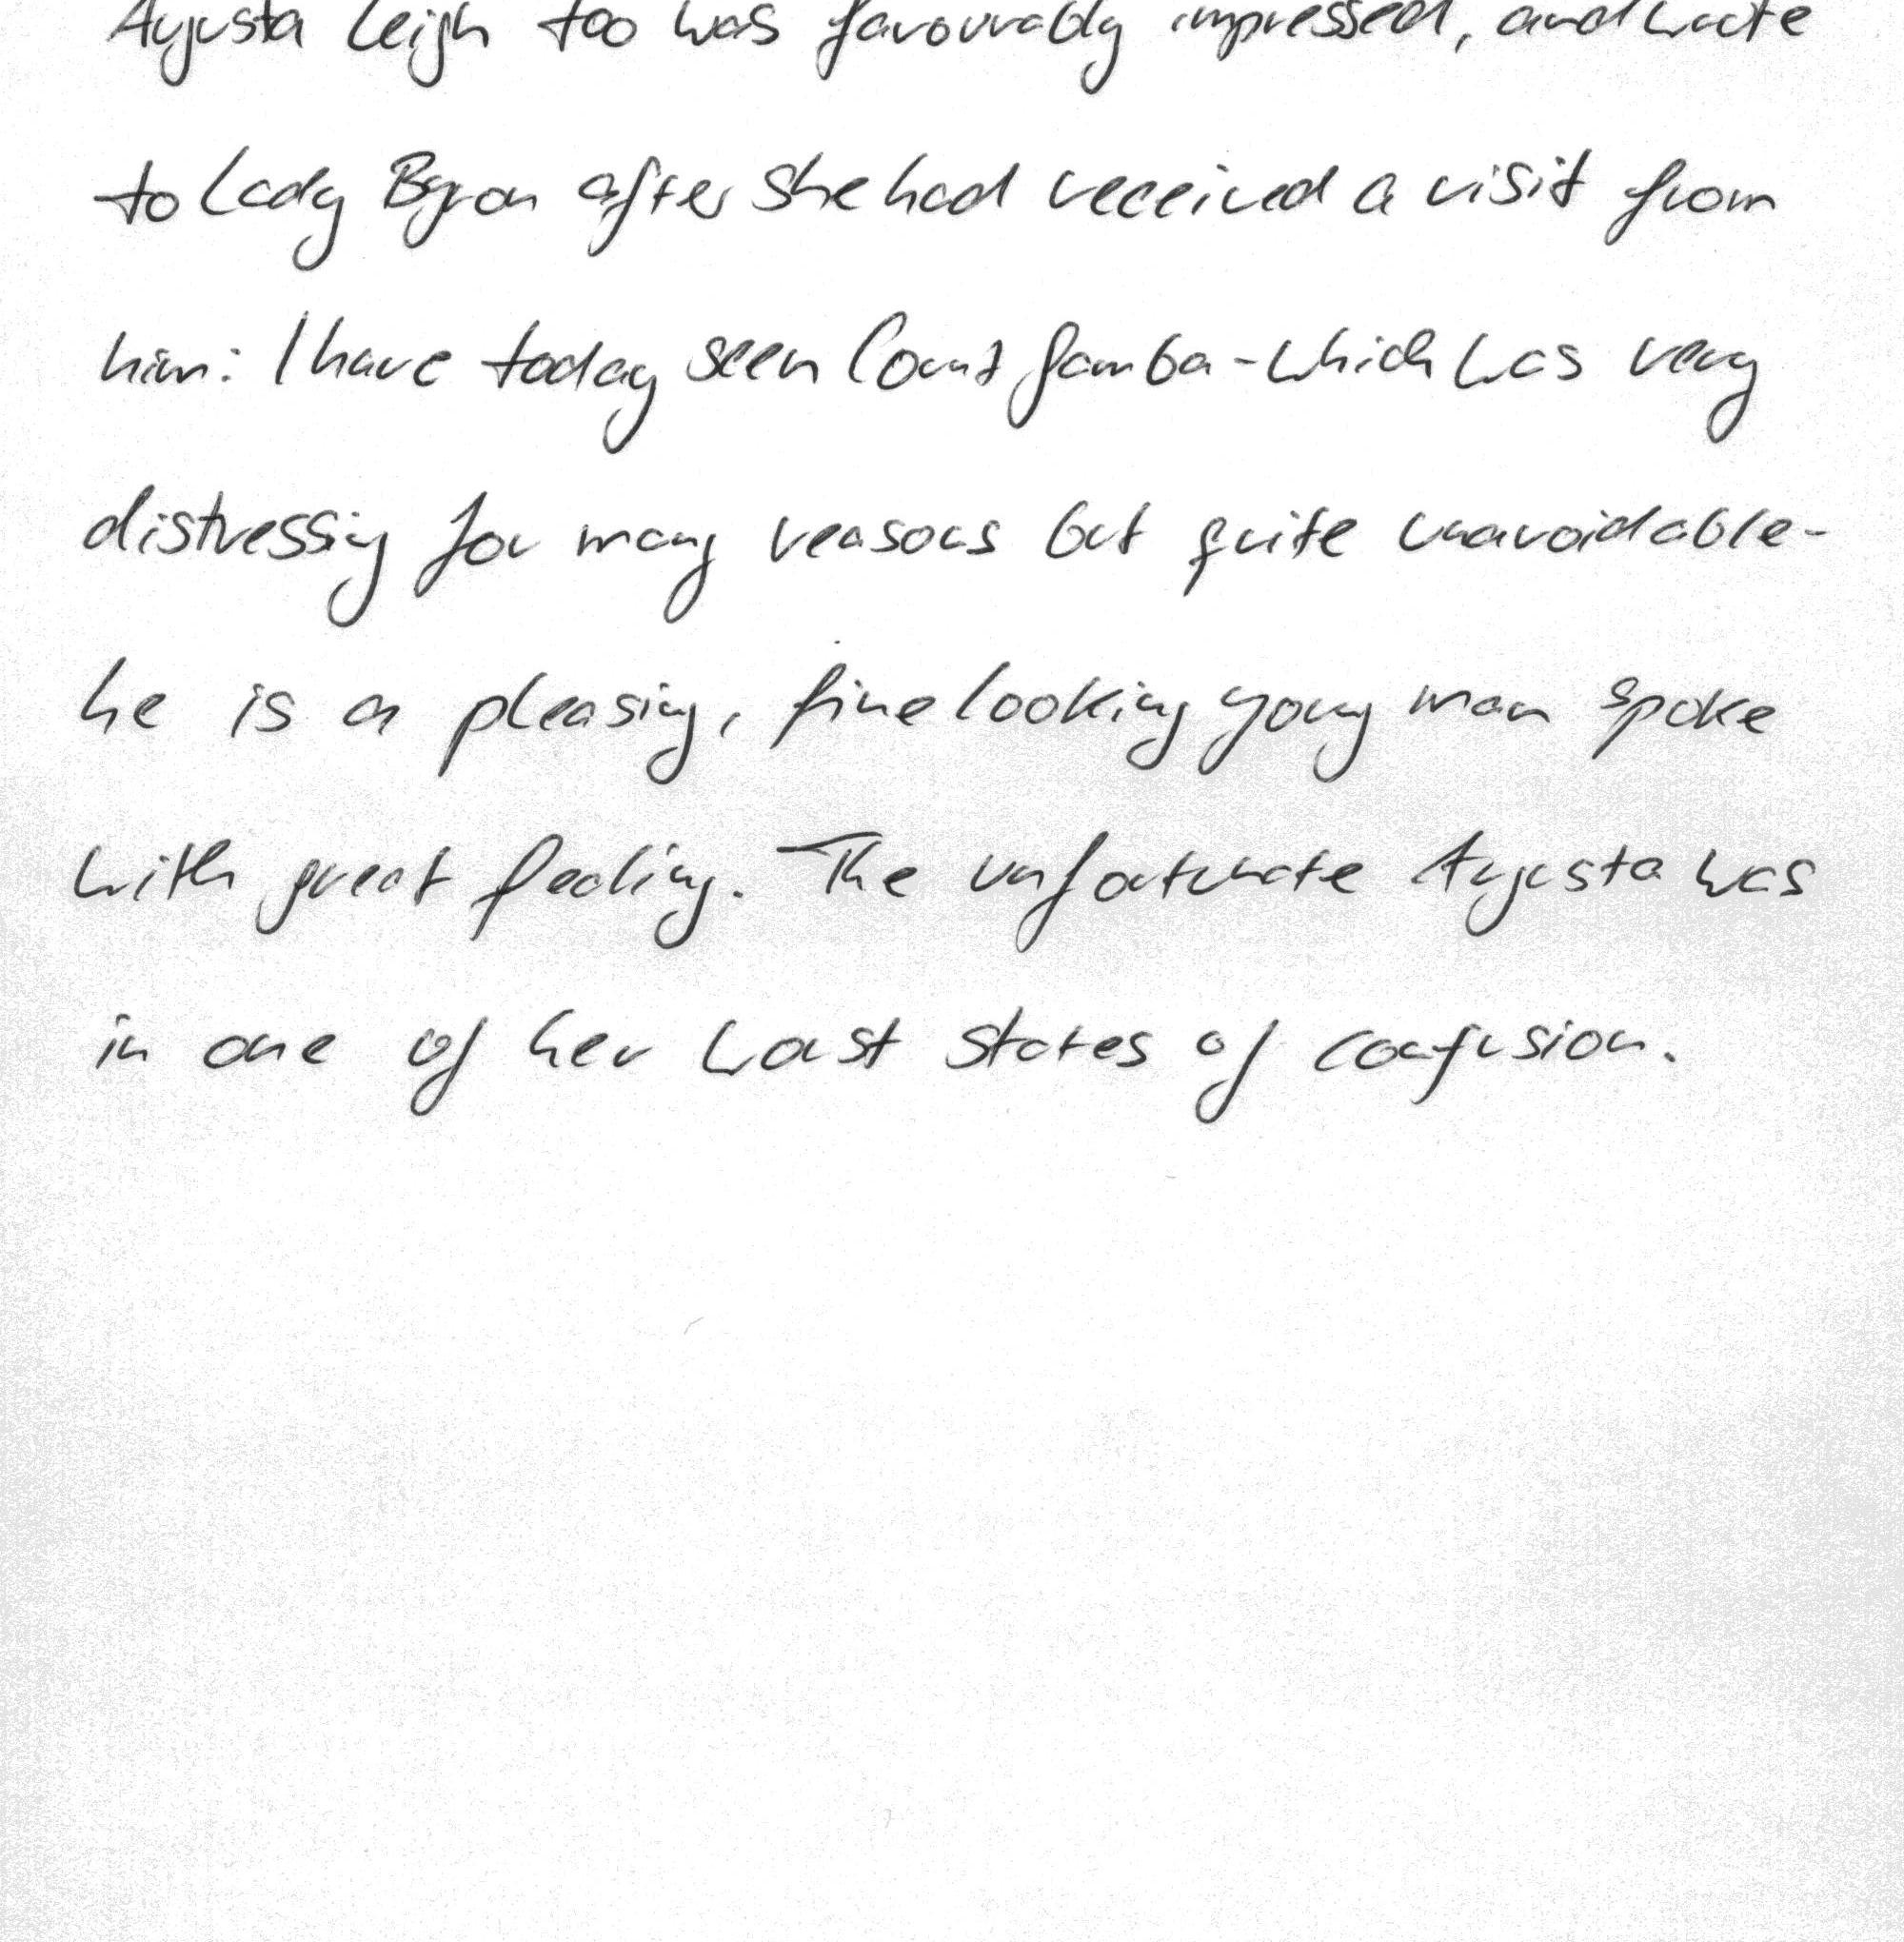 Augusta Leigh too was favourably impressed, and wrote
to Lady Byron after she had received a visit from
him: I have today seen Count Gamba - which was very
distressing for many reasons but quite unavoidable -
he is a pleasing, fine looking young man spoke
with great feeling. The unfortunate Augusta was
in one of her worst states of confusion.